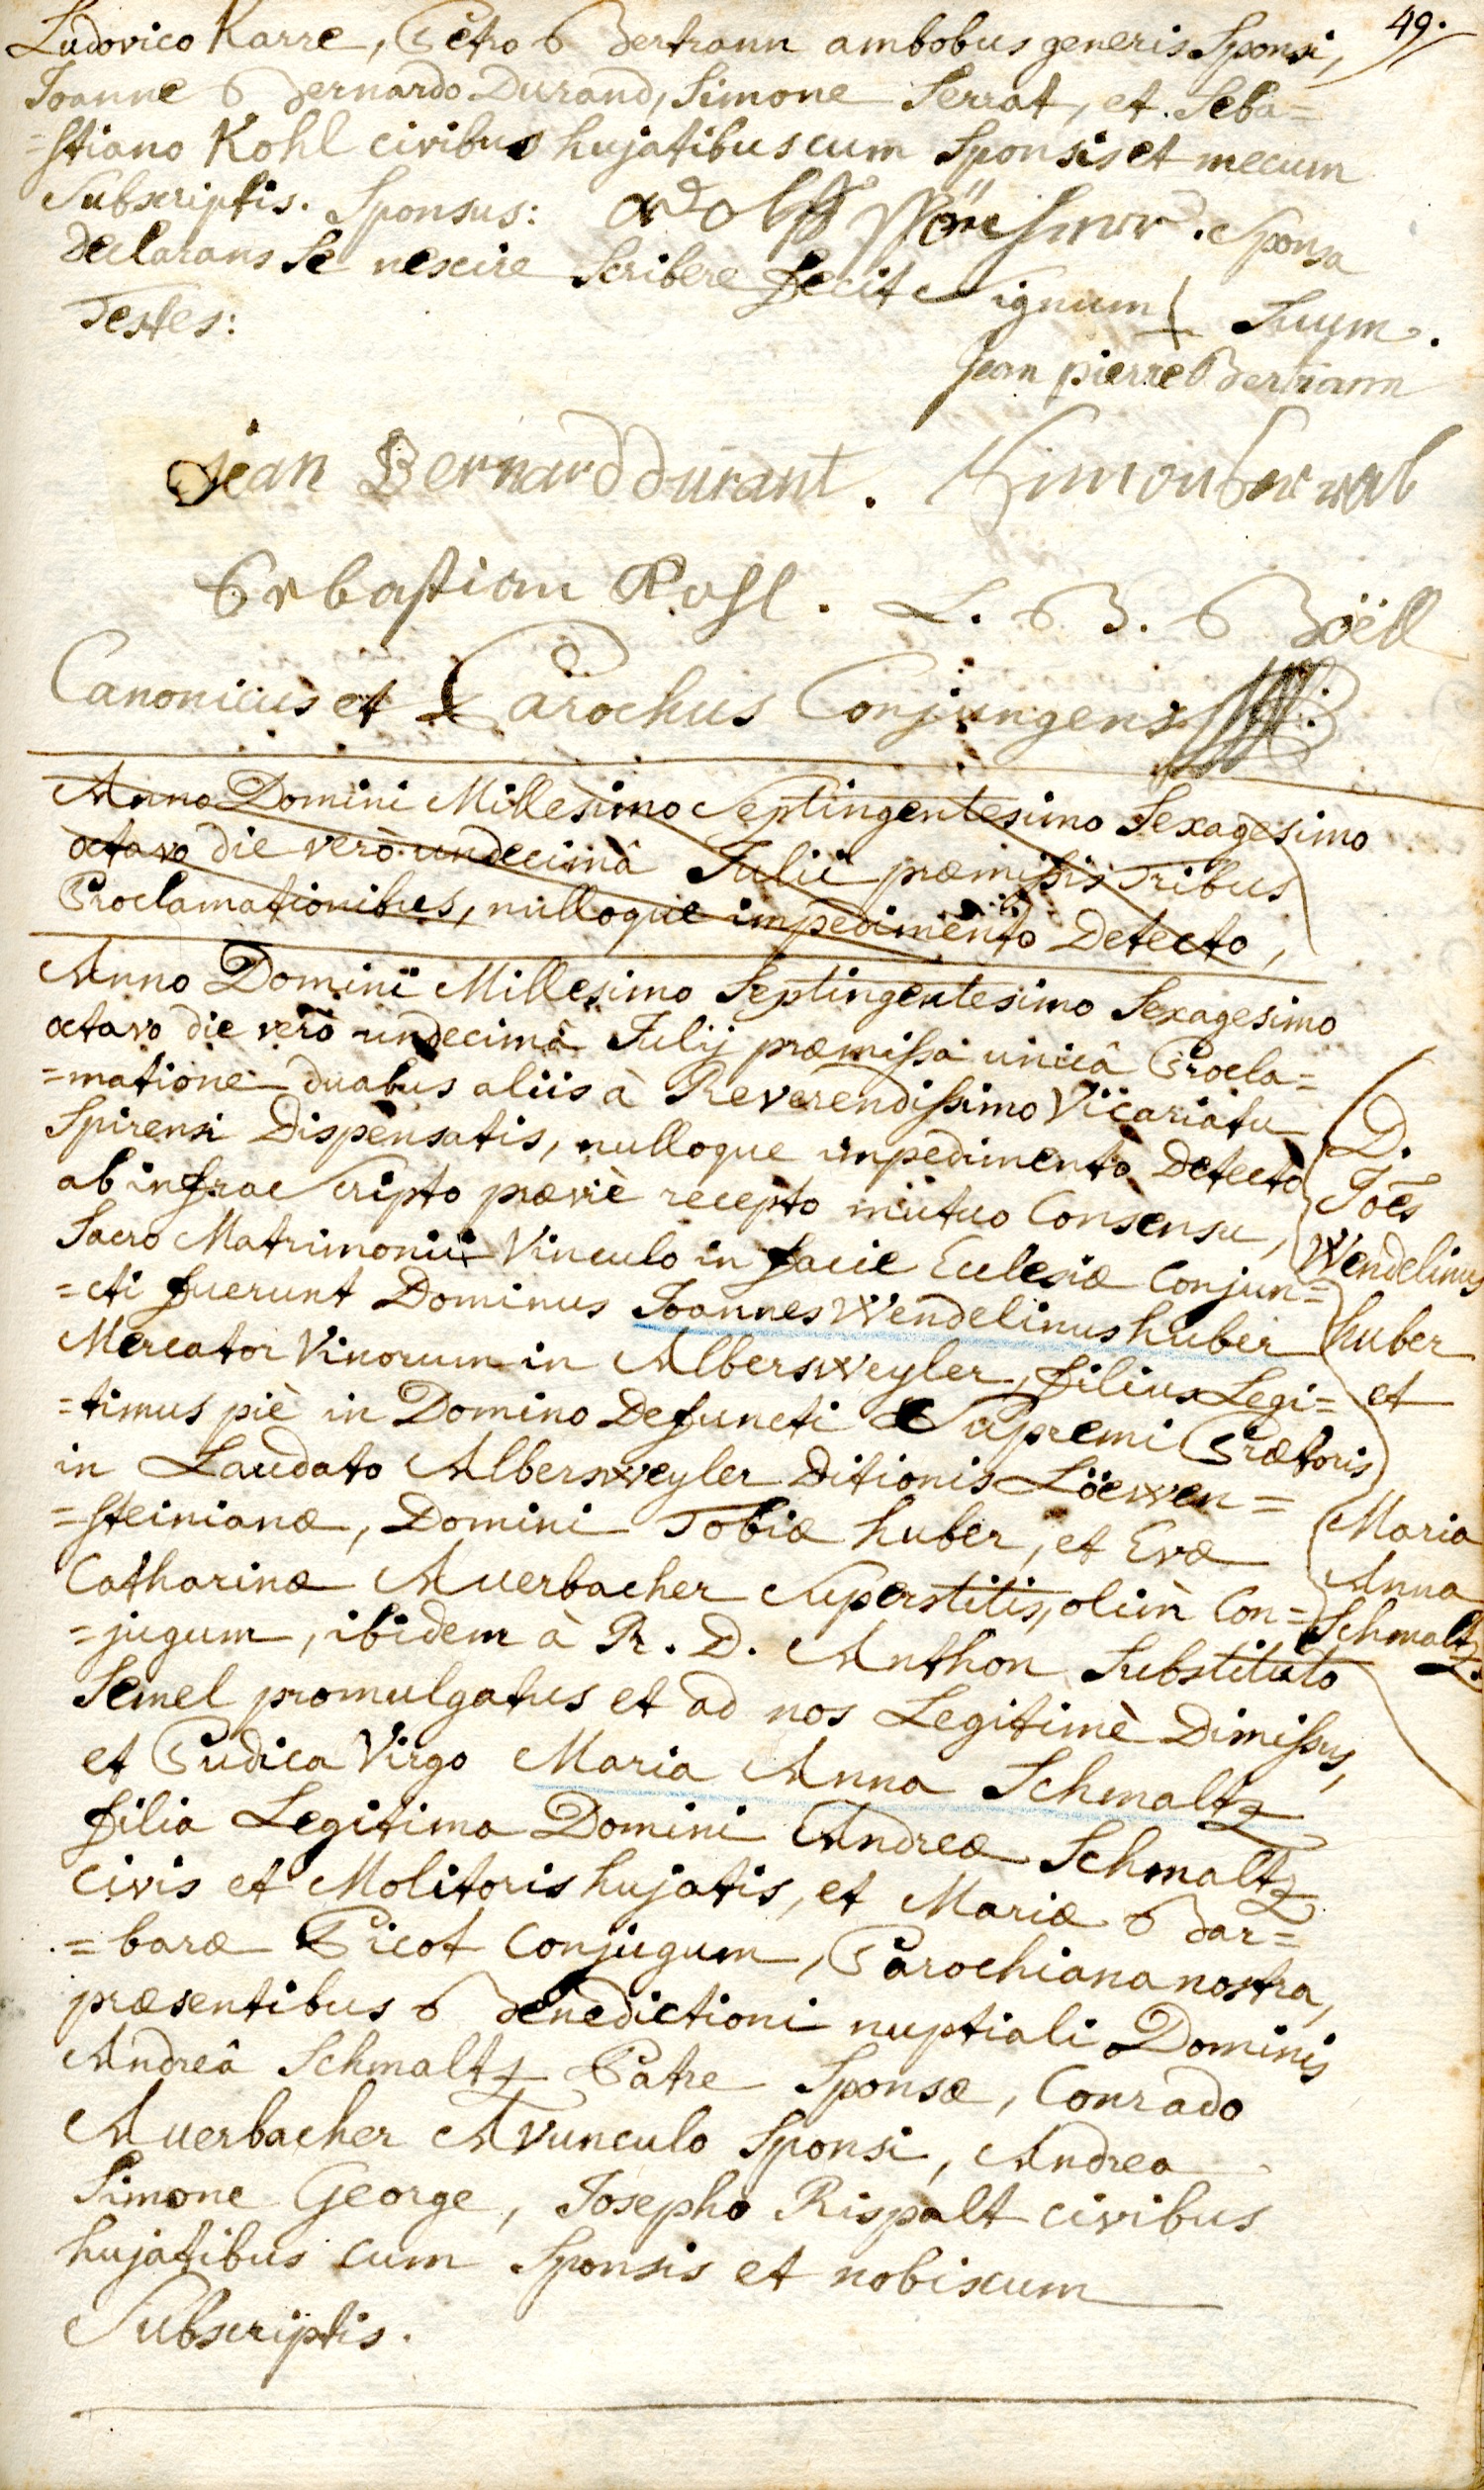 49.
Ludovico Karre, Petro Bertrann ambobus generis Sponsi,
Joanne Bernardo Durand, Simone Serrat, et Seba=
=stiano Kohl civibus hujatibus cum Sponsis et mecum
Subscriptis. Sponsus: Sponsa
declarans se nescire scribere fecit Signum Suum.
Testes:
Jean pierre Bertrann
jean Bernard durant. Simon
Sebastian Kohl. L. B. Boëll
Canonicus et Parochus Conjungens
Anno Domini Millesimo Septingentesimo Sexagesimo
octavo die verò undecimâ Julii præmissis Tribus
Proclamationibus, nulloque impedimento Detecto,
Anno Domini Millesimo Septingentesimo Sexagesimo
octavo die verò undecimâ Julij præmissa unicâ Procla=
=matione duabus aliis à Reverendissimo Vicariatu
Spirensi Dispensatis, nulloque impedimento Detecto
ab infrascripto præviè recepto mutuo Consensu,
Sacro Matrimonii Vinculo in facie Ecclesiæ Conjun=
=cti fuerunt Dominus Joannes Wendelinus huber
Mercator Vinorum in Albersweyler, filius Legi=
=timus piè in Domino Defuncti Supremi Prætoris
in Laudato Albersweyler Ditionis Löewen=
=steinianæ, Domini Tobiæ huber, et Evæ
Catharinæ Auerbacher Superstitis, olim Con=
=jugum, ibidem à R. D. Anthon Substituto
Semel promulgatus et ad nos Legitimè Dimissus,
et Pudica Virgo Maria Anna Schmaltz
filia Legitima Domini Andreæ Schmaltz
Civis et Molitoris hujatis, et Mariæ Bar=
=baræ Picot Conjugum, Parochiana nostra,
præsentibus Benedictioni nuptiali Dominis
Andreâ Schmaltz Patre Sponsæ, Conrado
Auerbacher Avunculo Sponsi, Andrea
Simone George, Josepho Rispalt civibus
hujatibus cum Sponsis et nobiscum
Subscriptis.
D.
Joes
Wendelinus
huber
et
Maria
Anna
Schmaltz.